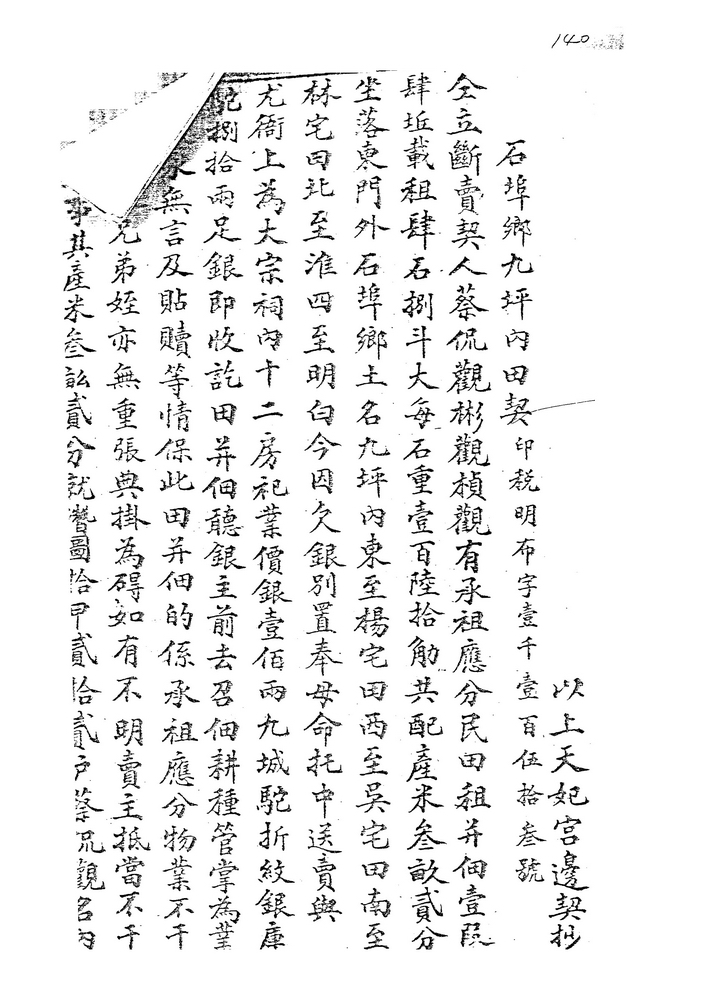 140
以上天妃宮邊契抄
石埠鄉九坪內田契印稅明布字壹千壹百伍拾叁號
仝立斷賣契人蔡侃觀彬觀楨觀有承祖應分民田租并佃壹段
肆坵載租肆石捌斗大每石重壹百陸拾觔共配產米叁畝貳分
坐落東門外石埠鄉土名九坪內東至楊宅田西至吳宅田南至
林宅田北至淮四至明白今因欠銀別置奉母命托中送賣與
尤衙上為大宗祠內十二房祀業價銀壹佰兩九城駝折紋銀庫
駝捌拾兩足銀即收訖田并佃聽銀主前去召佃耕種管掌為業
永無言及貼贖等情保此田并佃的係承祖應分物業不干
兄弟姪亦無重張典掛為碍如有不明賣主抵當不干
事其產米叁畝貳分就
圖拾甲貳拾貳戶蔡侃觀名內